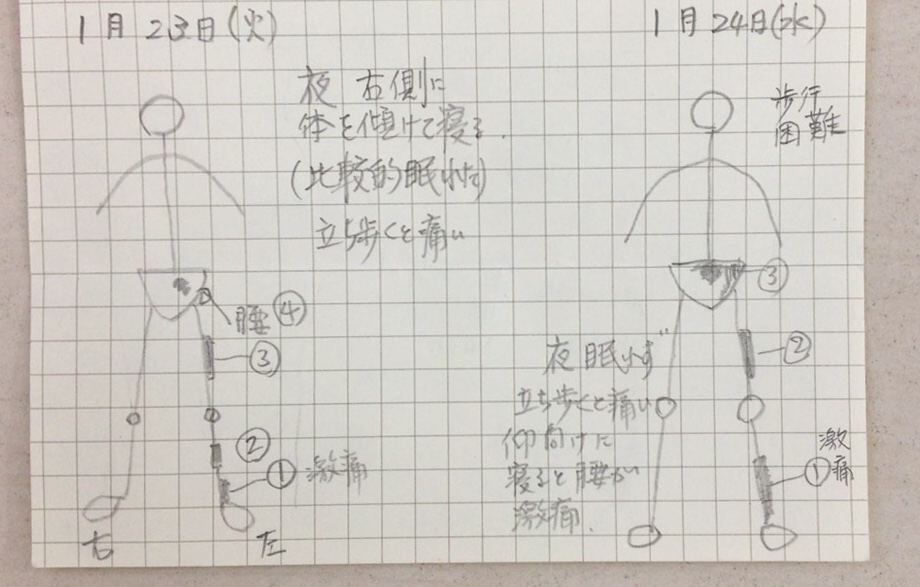 1月23日(火)
夜 右側に
体を傾けて寝る.
(比較的眠れた)
立ち歩くと痛い
腰④
③
②
① 激痛
右
左
1月24日(水)
歩行
困難
③
②
夜 眠れず
立ち歩くと痛い
仰向けに
寝ると腰が
激痛.
① 激
痛